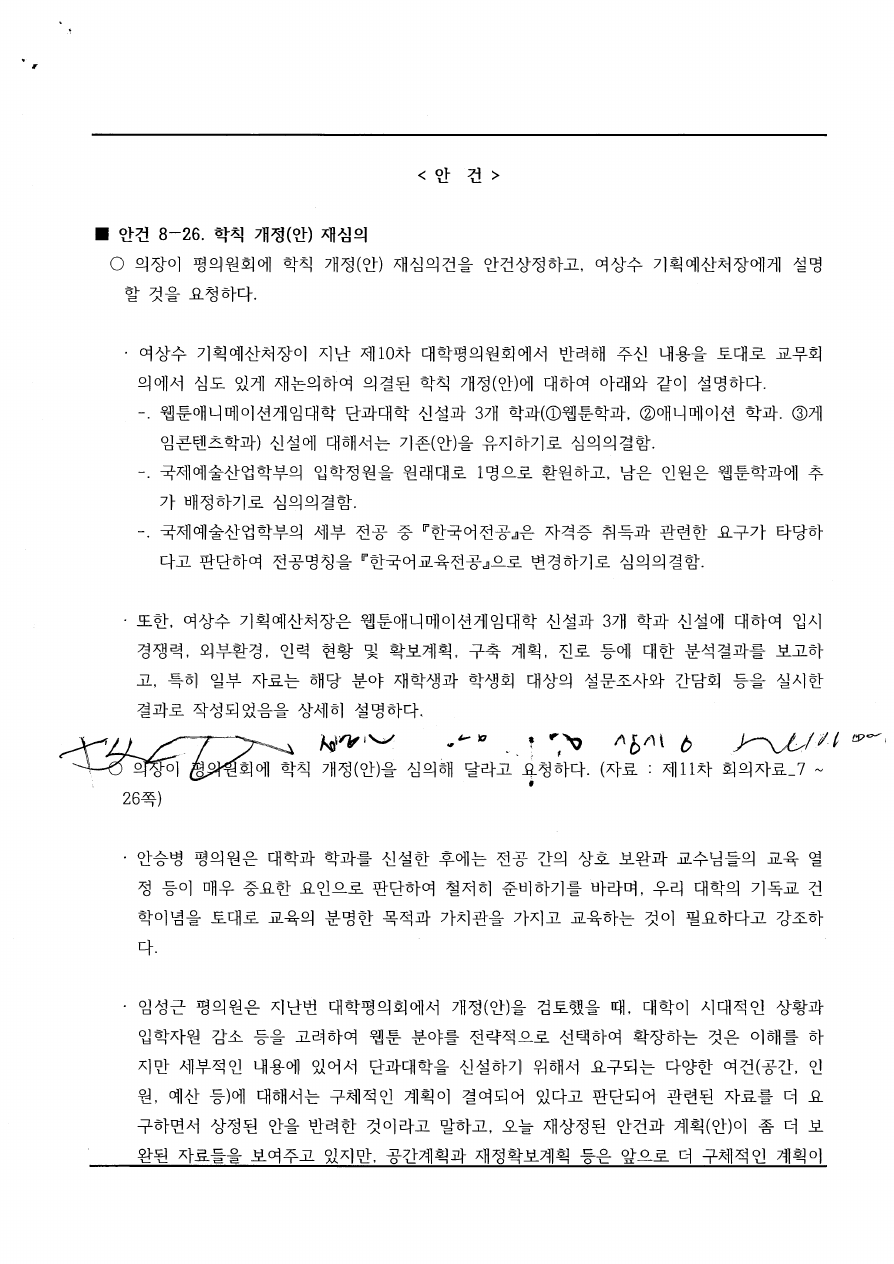 < 안 건 >
■ 안건 8-26. 학칙 개정(안) 재심의
○ 의장이 평의원회에 학칙 개정(안) 재심의건을 안건상정하고, 여상수 기획예산처장에게 설명
할 것을 요청하다.
· 여상수 기획예산처장이 지난 제10차 대학평의원회에서 반려해 주신 내용을 토대로 교무회
의에서 심도 있게 재논의하여 의결된 학칙 개정(안)에 대하여 아래와 같이 설명하다.
-. 웹툰애니메이션게임대학 단과대학 신설과 3개 학과(①웹툰학과, ②애니메이션 학과. ③게
임콘텐츠학과) 신설에 대해서는 기존(안)을 유지하기로 심의의결함.
-. 국제예술산업학부의 입학정원을 원래대로 1명으로 환원하고, 남은 인원은 웹툰학과에 추
가 배정하기로 심의의결함.
-. 국제예술산업학부의 세부 전공 중 『한국어전공』은 자격증 취득과 관련한 요구가 타당하
다고 판단하여 전공명칭을 『한국어교육전공』으로 변경하기로 심의의결함.
· 또한, 여상수 기획예산처장은 웹툰애니메이션게임대학 신설과 3개 학과 신설에 대하여 입시
경쟁력, 외부환경, 인력 현황 및 확보계획, 구축 계획, 진로 등에 대한 분석결과를 보고하
고, 특히 일부 자료는 해당 분야 재학생과 학생회 대상의 설문조사와 간담회 등을 실시한
결과로 작성되었음을 상세히 설명하다.
○ 의장이 평의원회에 학칙 개정(안)을 심의해 달라고 요청하다. (자료 : 제11차 회의자료_7 ~
26쪽)
· 안승병 평의원은 대학과 학과를 신설한 후에는 전공 간의 상호 보완과 교수님들의 교육 열
정 등이 매우 중요한 요인으로 판단하여 철저히 준비하기를 바라며, 우리 대학의 기독교 건
학이념을 토대로 교육의 분명한 목적과 가치관을 가지고 교육하는 것이 필요하다고 강조하
다.
· 임성근 평의원은 지난번 대학평의회에서 개정(안)을 검토했을 때, 대학이 시대적인 상황과
입학자원 감소 등을 고려하여 웹툰 분야를 전략적으로 선택하여 확장하는 것은 이해를 하
지만 세부적인 내용에 있어서 단과대학을 신설하기 위해서 요구되는 다양한 여건(공간, 인
원, 예산 등)에 대해서는 구체적인 계획이 결여되어 있다고 판단되어 관련된 자료를 더 요
구하면서 상정된 안을 반려한 것이라고 말하고, 오늘 재상정된 안건과 계획(안)이 좀 더 보
완된 자료들을 보여주고 있지만, 공간계획과 재정확보계획 등은 앞으로 더 구체적인 계획이